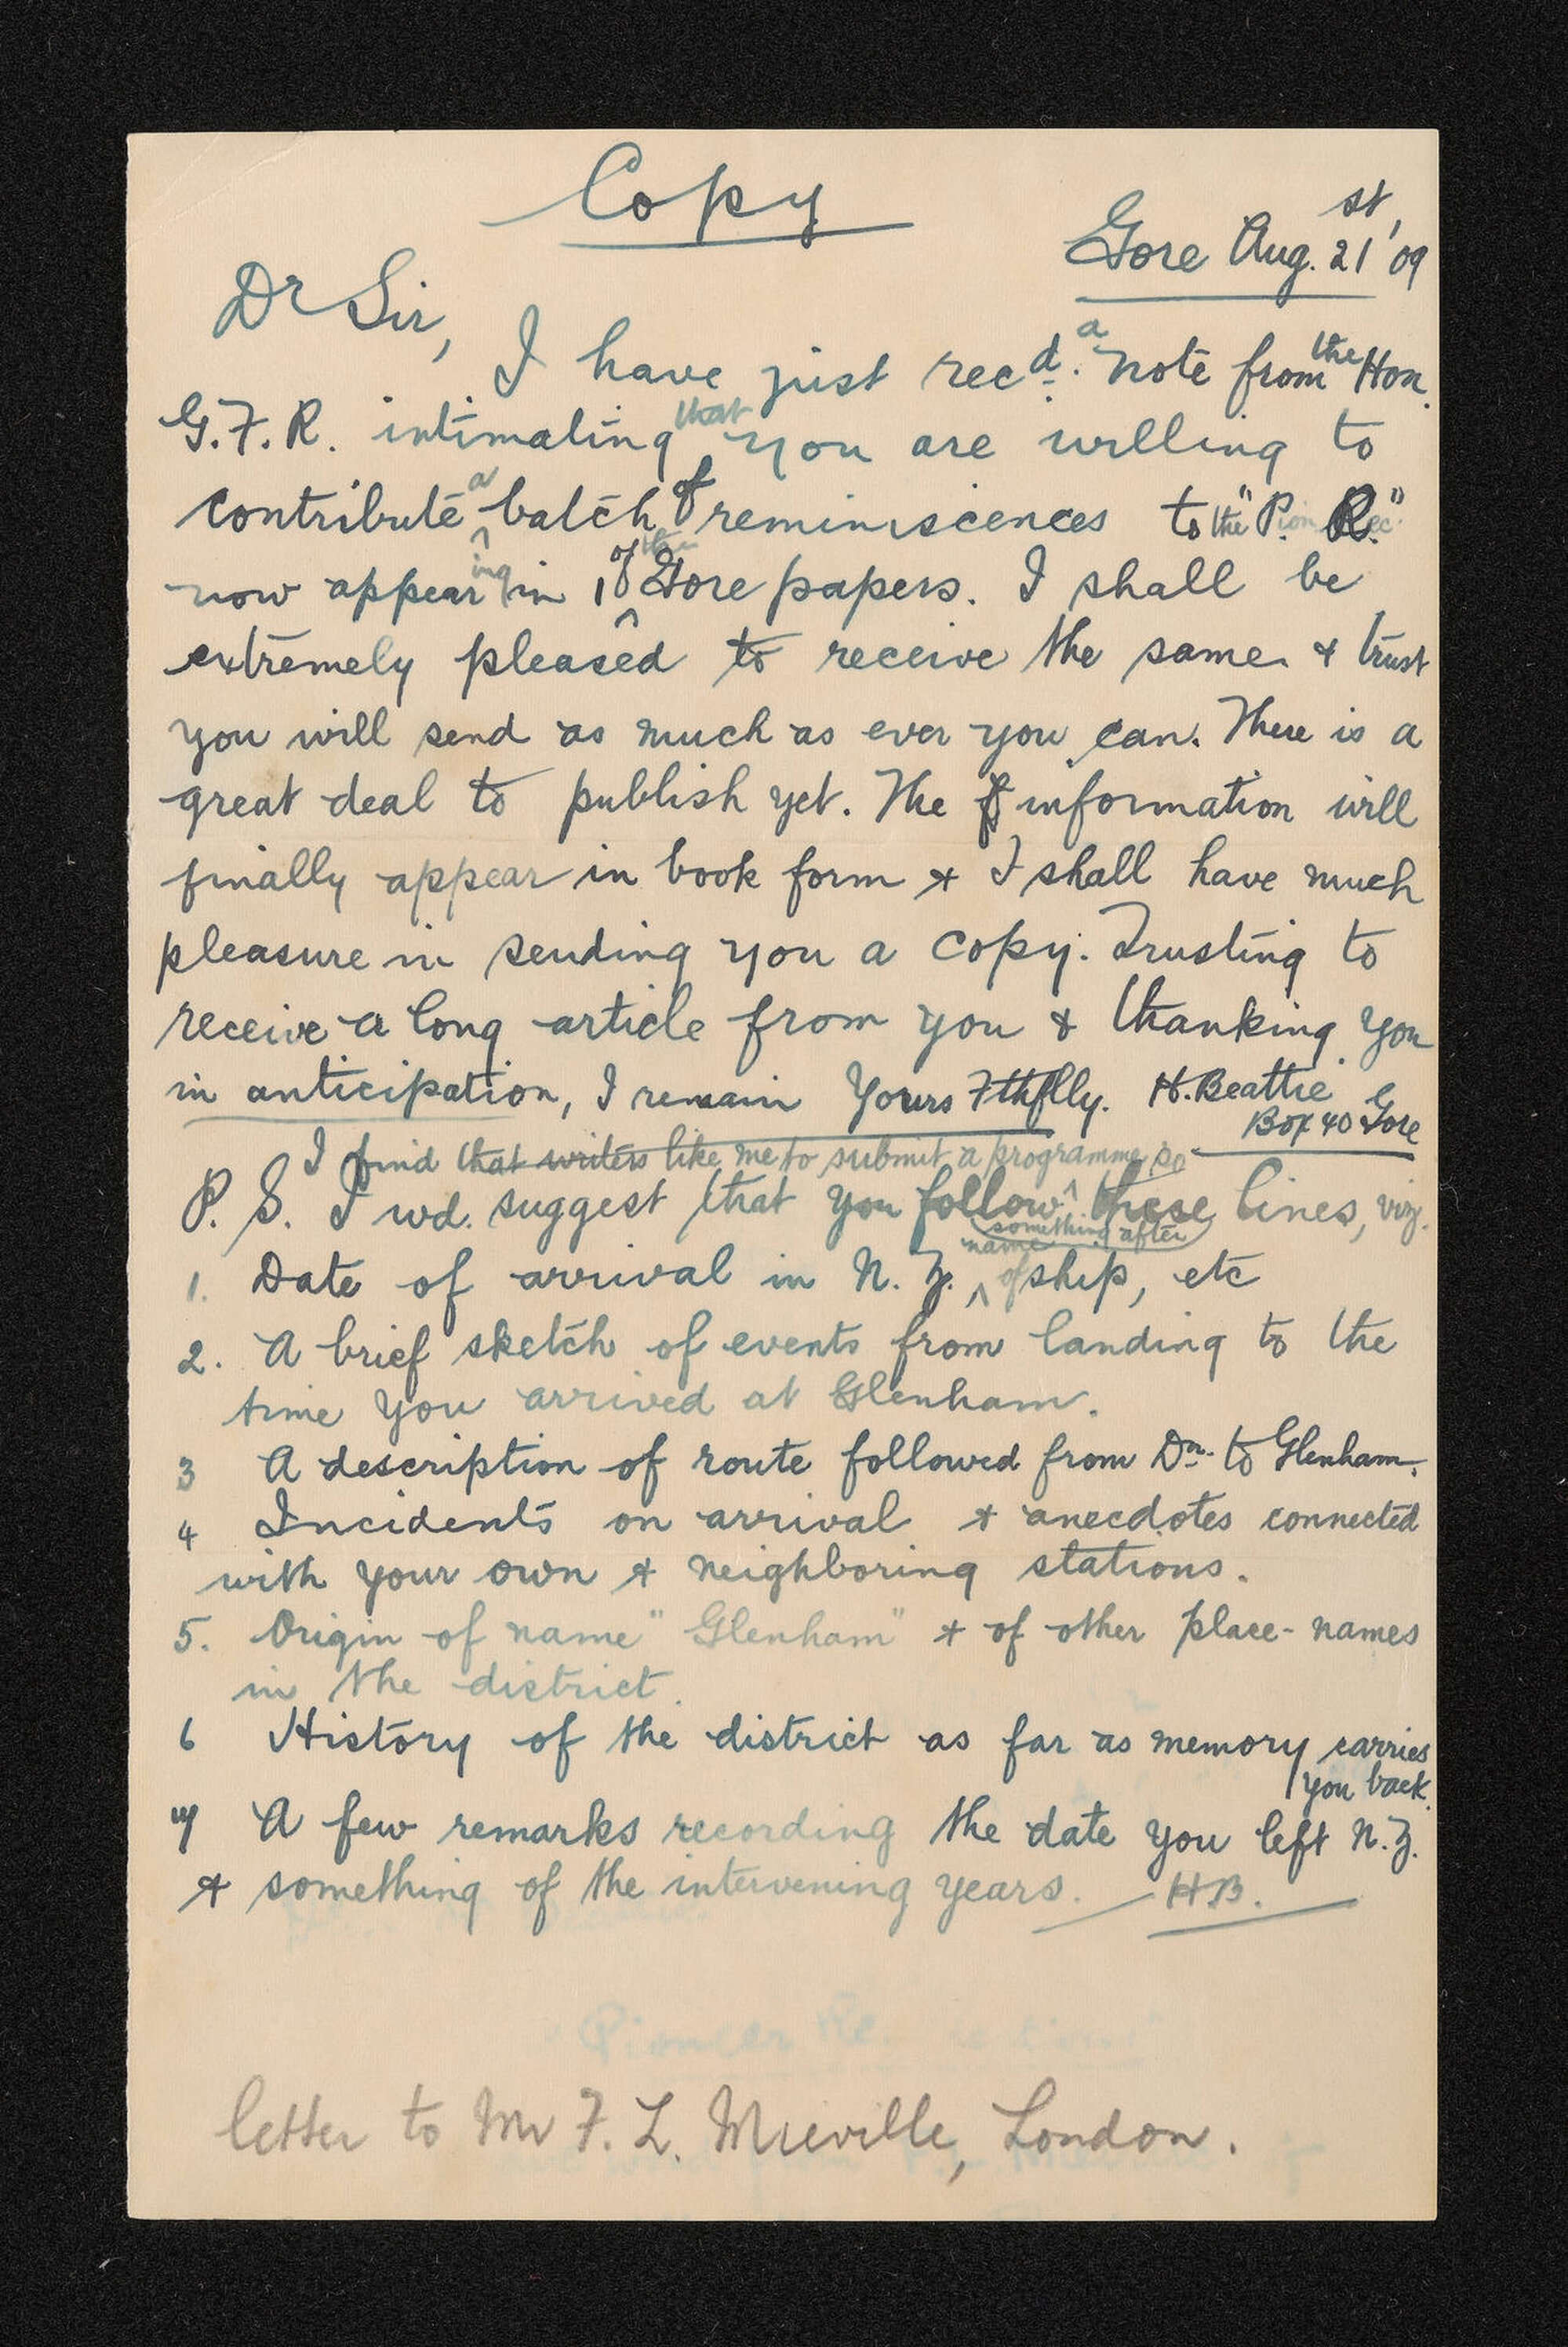 Copy
Gore Aug. 21st, '09
Dr Sir,
I have just recd. a note from the Hon.
G.F.R. intimating that you are willing to
contribute a batch of reminiscences to the "P. R."
now appearing in 1 of the Gore papers. I shall be
extremely pleased to receive the same & trust
you will send as much as ever you can. There is a
great deal to publish yet. The information will
finally appear in book form & I shall have much
pleasure in sending you a copy. Trusting to
receive a long article from you & thanking you
in anticipation, I remain Yours Fthflly. H. Beattie
Box 40 Gore
I find that writers like me to submit a programme so
P. S. I wd. suggest that you follow something after these lines, viz.
1. Date of arrival in N. Z. name of ship, etc
2. A brief sketch of events from landing to the
time you arrived at Glenham.
3 A description of route followed from Dn. to Glenham.
4 Incidents on arrival & anecdotes connected
with your own & neighboring stations.
5. Origin of name "Glenham" & of other place-names
in the district.
6 History of the district as far as memory carries
you back.
7 A few remarks recording the date you left N.Z.
& something of the intervening years. — HB.
letter to Mr F. L. Mieville, London.